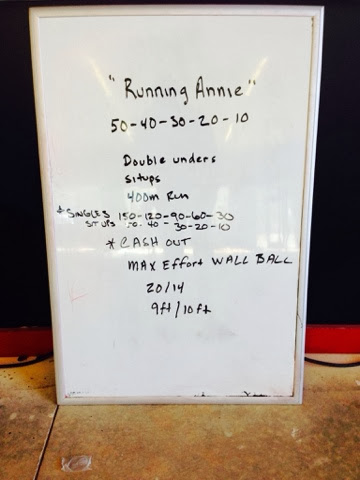 "Running Annie"
50-40-30-20-10
Double unders
situps
400m Run
*SINGLES 150-120-90-60-30
SIT UPS 50-40-30-20-10
*CASH OUT
MAX Effort WALL BALL
20/14
9ft/10ft